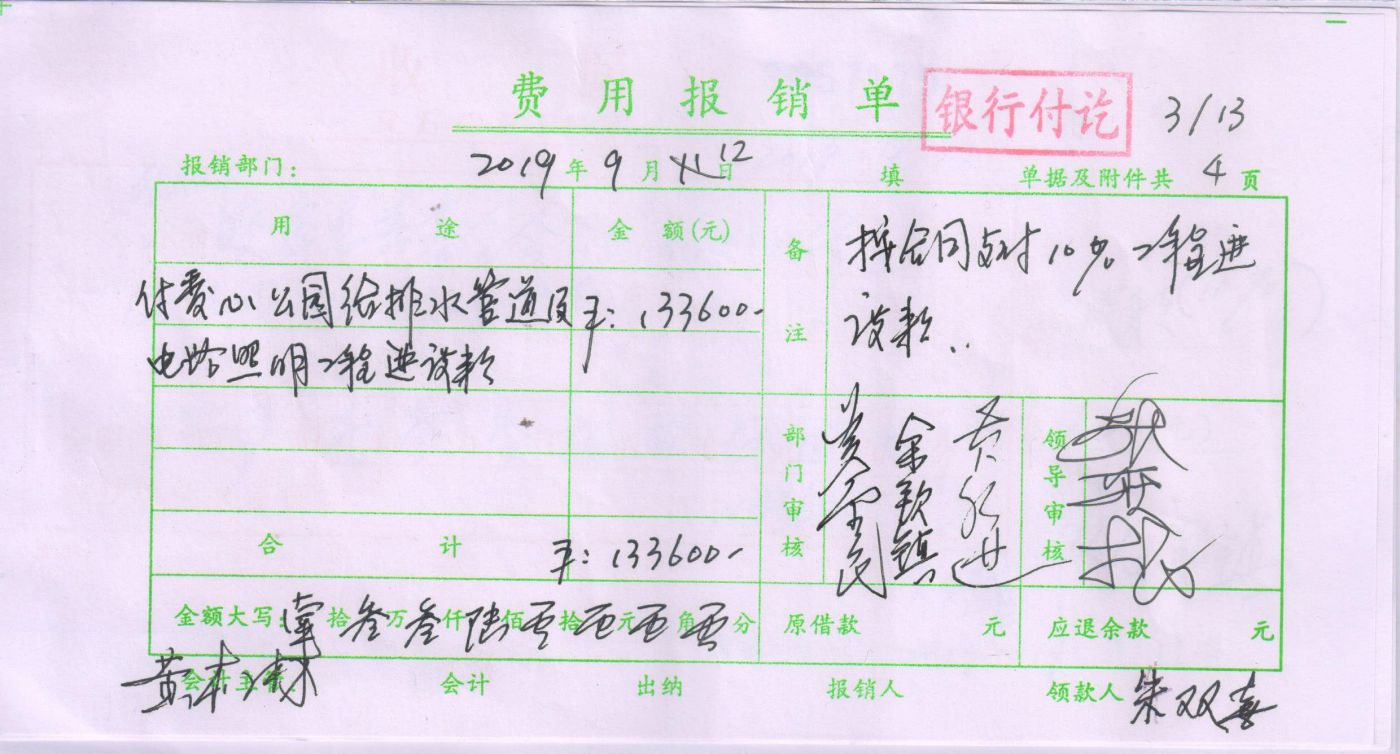 费用报销单
银行付讫
3/13
报销部门: 2019年9月12日 填 单据及附件共 4 页
用途 金额(元) 备注
付爱心公园给排水管道及 ¥:133600-
电路照明工程进设款
按合同支付10%工程进
设款.
部门审核
黄金民
余钦镇
领导审核
合计 ¥:133600-
金额大写: 壹拾叁万叁仟陆佰零拾零元零角零分 原借款 元 应退余款 元
会计主管 会计 出纳 报销人 领款人 朱双喜